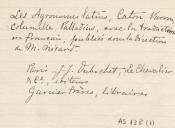 Les Agronomes latins, Caton, Varron,
Columelle, Palladius, avec la traduction
en français, publiés sous la direction
de M. Nisard.
Paris J.J. Dubochet, Le Chevalier
et Cie, éditeurs
Garnier Frères, Libraires
AS 138 (1)